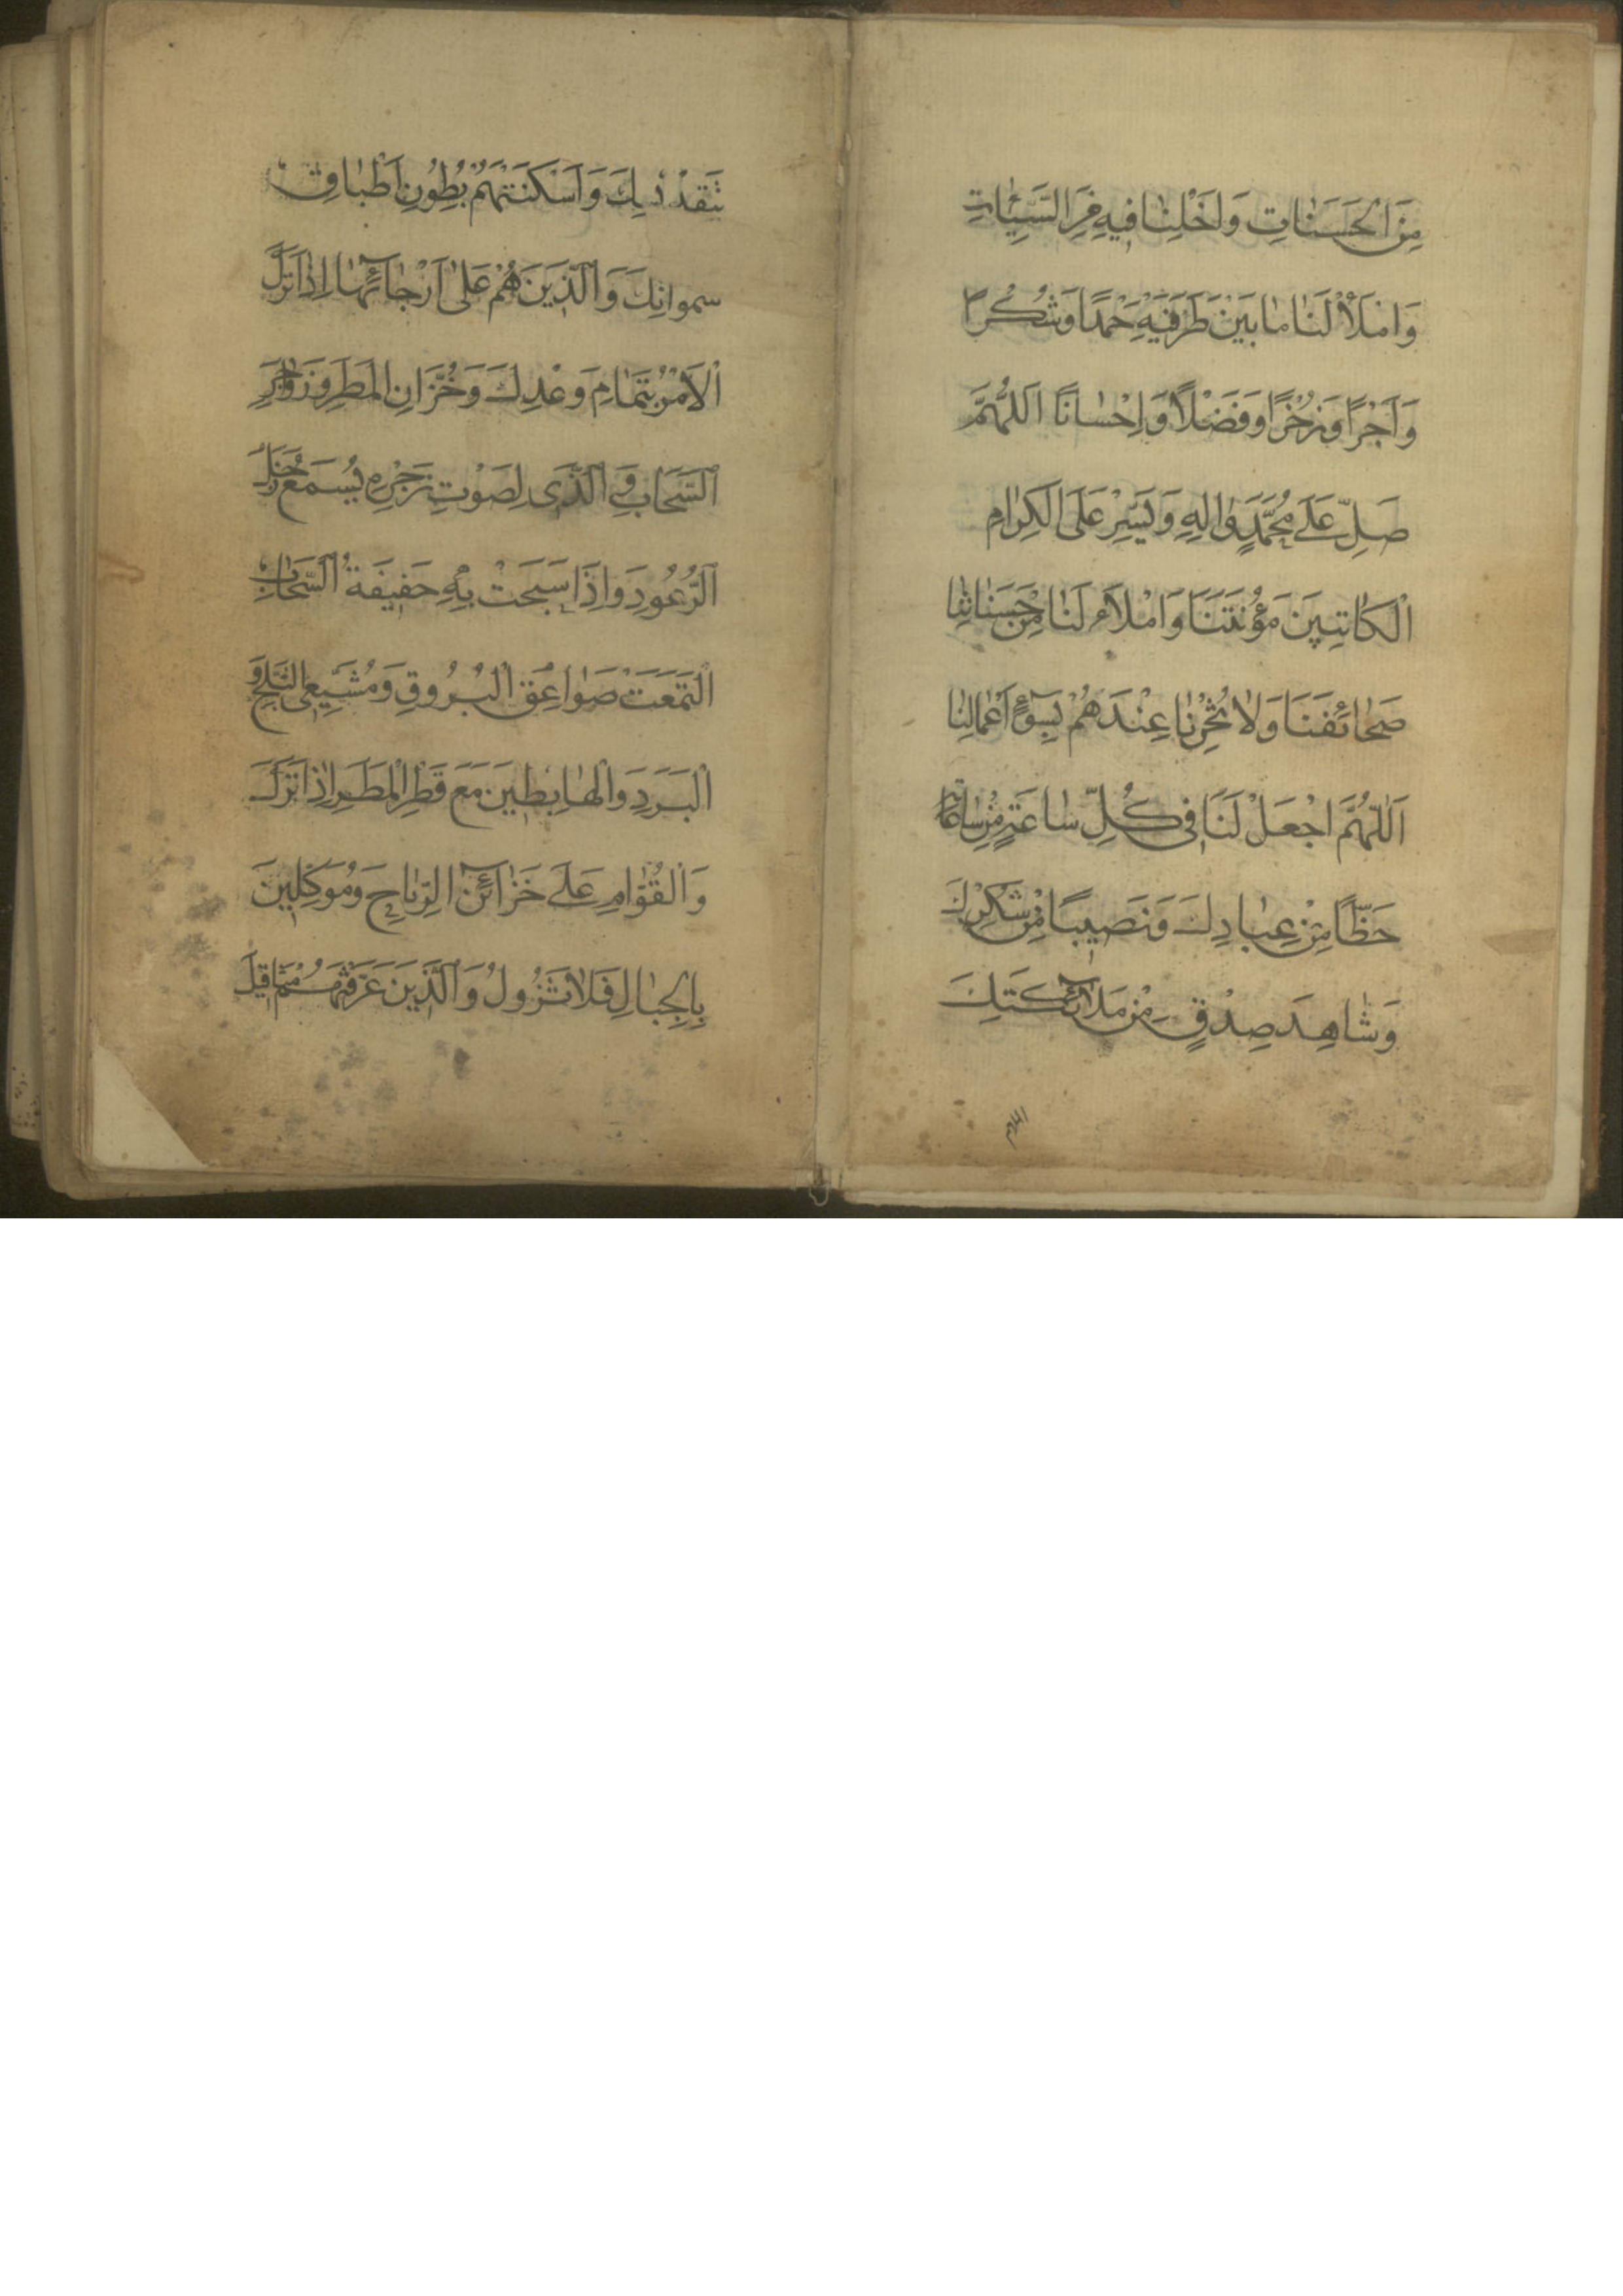 مِنَ الْحَسَنٰاتِ وَاَخْلِنٰا فيهِ مِنَ السَّيِّئٰاتِ
وَامْلَأْ لَنٰا مٰا بَيْنَ طَرَفَيْهِ حَمْدًا وَشُكْرًا
وَاَجْرًا وَذُخْرًا وَفَضْلًا وَاِحْسٰانًا اَللّٰهُمَّ
صَلِّ عَلٰى مُحَمَّدٍ وَاٰلِهِ وَيَسِّرْ عَلَى الْكِرٰامِ
الْكٰاتِبينَ مَؤُنَتَنَا وَامْلَأْ لَنٰا مِنْ حَسَنٰاتِنٰا
صَحٰائِفَنَا وَلٰا تُخْزِنٰا عِنْدَهُمْ بِسُوٓءِ اَعْمٰالِنٰا
اَللّٰهُمَّ اجْعَلْ لَنَا في كُلِّ سٰاعَةٍ مِنْ سٰاعٰاتِهِ
حَظًّا مِنْ عِبٰادِكَ وَنَصيبًا مِنْ شُكْرِكَ
وَشٰاهِدَ صِدْقٍ مِنْ مَلٰآئِكَتِكَ
بِتَقْديسِكَ وَاَسْكَنْتَهُمْ بُطُونِ اَطْبٰاقِ
سمواتِكَ وَالَّذينَ هُمْ عَلٰى اَرْجٰآئِهٰا اِذٰا نَزَلَ
الْاَمْرُ بِتَمٰامِ وَعْدِكَ وَخُزَّانِ الْمَطَرِ وَزَوٰاجِرِ
السَّحَابِ وَ الَّذى لِصَوْتِ زَجْرِهِ يُسْمَعُ زَجَلُ
الرُّعُودِ وَاِذَا سَبَحَتْ بِهِ حَفيفَةُ السَّحٰابِ
الْتَمَعَتْ صَوٰاعِقُ الْبُرُوقِ وَمُشَيِّعِى الثَّلْجِ وَ
الْبَرَدِ وَالْهٰابِطينَ مَعَ قَطْرِ الْمَطَرِ اِذٰا نَزَلَ
وَالْقُوّٰامِ عَلٰى خَزٰآئِنِ الرِّيٰاحِ وَمُوَكِّلينَ
بِالْجِبٰالِ فَلٰا تَزُولُ وَالَّذينَ عَرَّفْتَهُمْ مَثٰاقيلَ